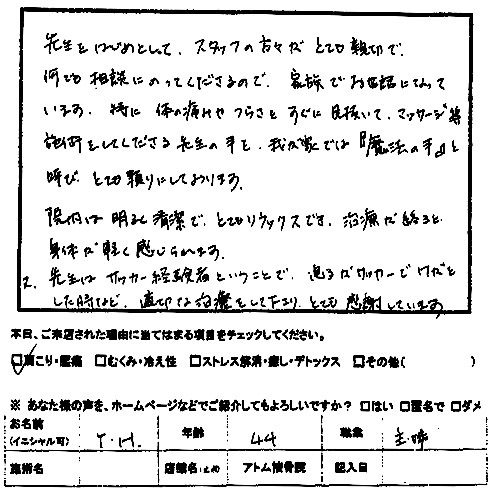 先生をはじめとして、スタッフの方々がとても親切で、
何でも相談にのってくださるので、家族でお世話になって
います。特に体の痛みやつらさをすぐに見抜いて、マッサージ等
施術をしてくださる先生の手を、我が家では『魔法の手』と
呼び、とても頼りにしております。
院内は明るく清潔で、とてもリラックスでき、治療が終ると
身体が軽く感じられます。
又、先生はサッカー経験者ということで、息子がサッカーでケガを
した時など、適切な治療をして下さり、とても感謝しています。
本日、ご来店された理由に当てはまる項目をチェックしてください。
☑肩こり・腰痛 □むくみ・冷え性 □ストレス解消・癒し・デトックス □その他( )
※ あなた様の声を、ホームページなどでご紹介してもよろしいですか? □はい □匿名で □ダメ
お名前 (イニシャル可) Y・H. 年齢 44 職業 主婦
施術名 店舗名 アトム接骨院 記入日